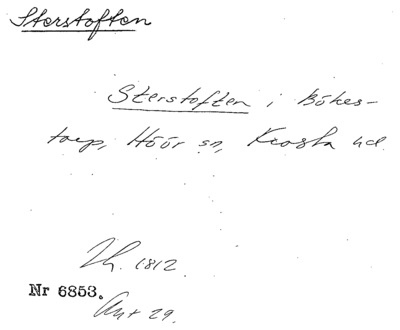 Sterstoften
Sterstoften i Bökes-
torp, Höör sn, Frosta hd
Lh. 1812.
Nr 6853.
Ant 29.